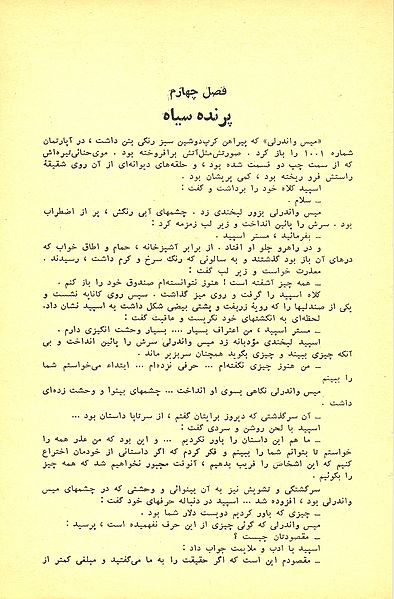 فصل چهارم
پرنده سیاه
«میس واندرلی» که پیراهن کرپ‌دوشین سبز رنگی بتن داشت ، در آپارتمان
شماره ۱۰۰۱ را باز کرد . صورتش‌مثل‌آتش برافروخته بود . موی‌حنائی‌تیره‌اش
که از سمت چپ دو قسمت شده بود ، و حلقه‌های دیوانه‌ای از آن روی شقیقهٔ
راستش فرو ریخته بود ، کمی پریشان بود .
اسپید کلاه خود را برداشت و گفت :
ــ سلام .
میس واندرلی بزور لبخندی زد . چشمهای آبی رنگش ، پر از اضطراب
بود . سرش را پائین انداخت و زیر لب زمزمه کرد :
ــ بفرمائید ، مستر اسپید .
و در راهرو جلو او افتاد . از برابر آشپزخانه ، حمام و اطاق خواب که
درهای آن باز بود گذشتند و به سالونی که رنگ سرخ و کرم داشت ، رسیدند .
معذرت خواست و زیر لب گفت :
ــ همه چیز آشفته است ! هنوز نتوانسته‌ام صندوق خود را باز کنم .
کلاه اسپید را گرفت و روی میز گذاشت . سپس روی کاناپه نشست و
یکی از صندلیها را که رویهٔ زربفت و پشتی بیضی شکل داشت به اسپید نشان داد.
لحظه‌ای به انگشتهای خود نگریست و عاقبت گفت :
ــ مستر اسپید ، من اعتراف بسیار .... بسیار وحشت انگیزی دارم .
اسپید لبخندی مؤدبانه زد میس واندرلی سرش را پائین انداخت و بی
آنکه چیزی ببیند و چیزی بگوید همچنان سربزیر ماند .
ــ من هنوز چیزی نگفته‌ام ... حرفی نزده‌ام ... ابتداء می‌خواستم شما
را ببینم
میس واندرلی نگاهی بسوی او انداخت ... چشمهای بینوا و وحشت زده‌ای
داشت .
ــ آن سرگذشتی که دیروز برایتان گفتم ، از سرتاپا داستان بود ...
اسپید با لحن روشن و سردی گفت :
ــ ما هم این داستان را باور نکردیم ... و این بود که من عذر همه را
خواستم تا بتوانم شما را ببینم و فکر کردم که اگر داستانی از خودمان اختراع
کنیم که این اشخاص را فریب بدهیم ، آنوقت مجبور نخواهیم شد که همه چیز
را بگوئیم .
سرگشتگی و تشویش نیز به آن بینوائی و وحشتی که در چشمهای میس
واندرلی بود ، افزوده شد ... اسپید در دنباله حرفهای خود گفت :
ــ چیزی که باور کردیم دویست دلار شما بود .
میس واندرلی که گوئی چیزی از این حرف نفهمیده است ، پرسید :
ــ مقصودتان چیست ؟
اسپید با ادب و ملایمت جواب داد :
ــ مقصودم این است که اگر حقیقت را به ما می‌گفتید و مبلغی کمتر از